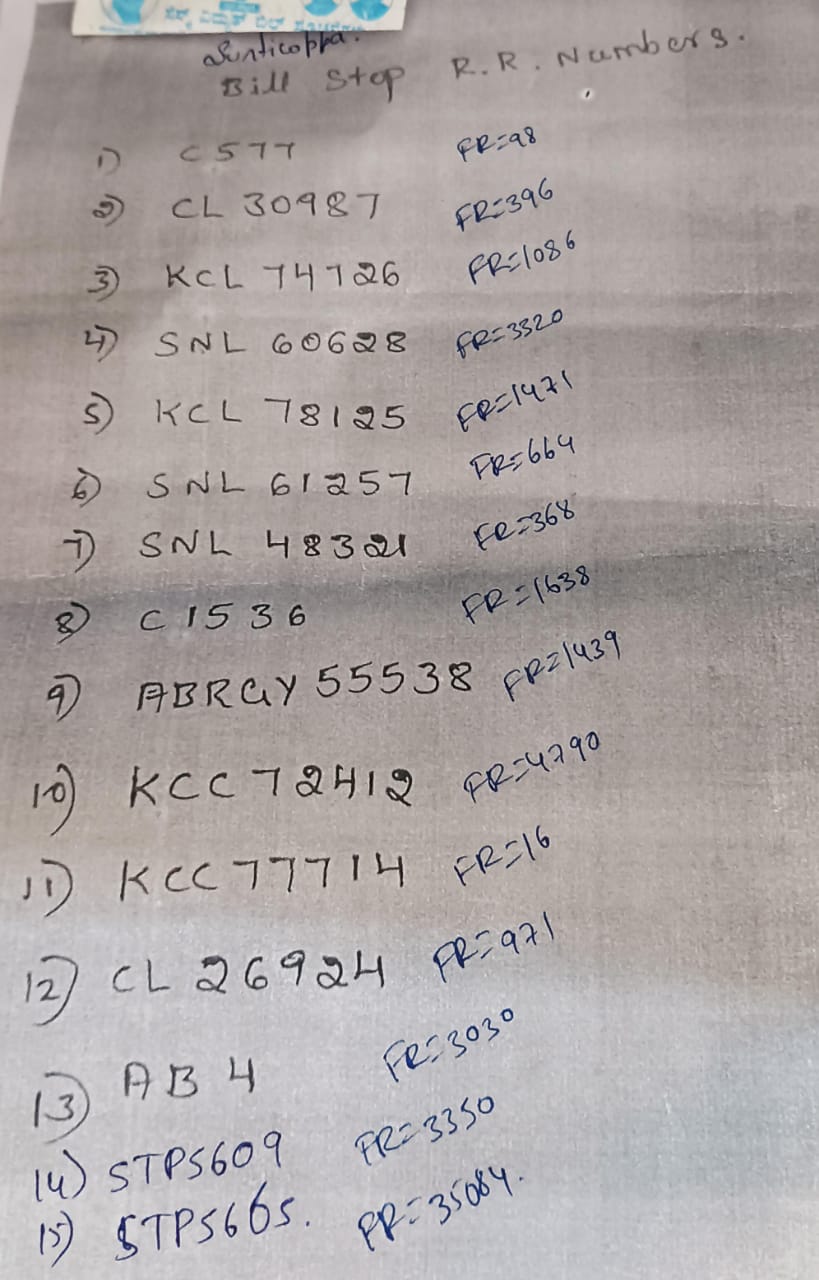 ಬಿಲ್
Sunticoppa.
Bill Stop R.R. Numbers.
1) C577 FR=98
2) CL 30987 FR=396
3) KCL 74726 FR=1086
4) SNL 60628 FR=3320
5) KCL 78125 FR=1471
6) SNL 61257 FR=664
7) SNL 48321 FR=368
8) C 1536 FR=1638
9) ABRGY 55538 FR=1439
10) KCC 72412 FR=4790
11) KCC 77714 FR=16
12) CL 26924 FR=971
13) AB 4 FR=3030
14) STP5609 FR=3350
15) STP5665. FR=35084.